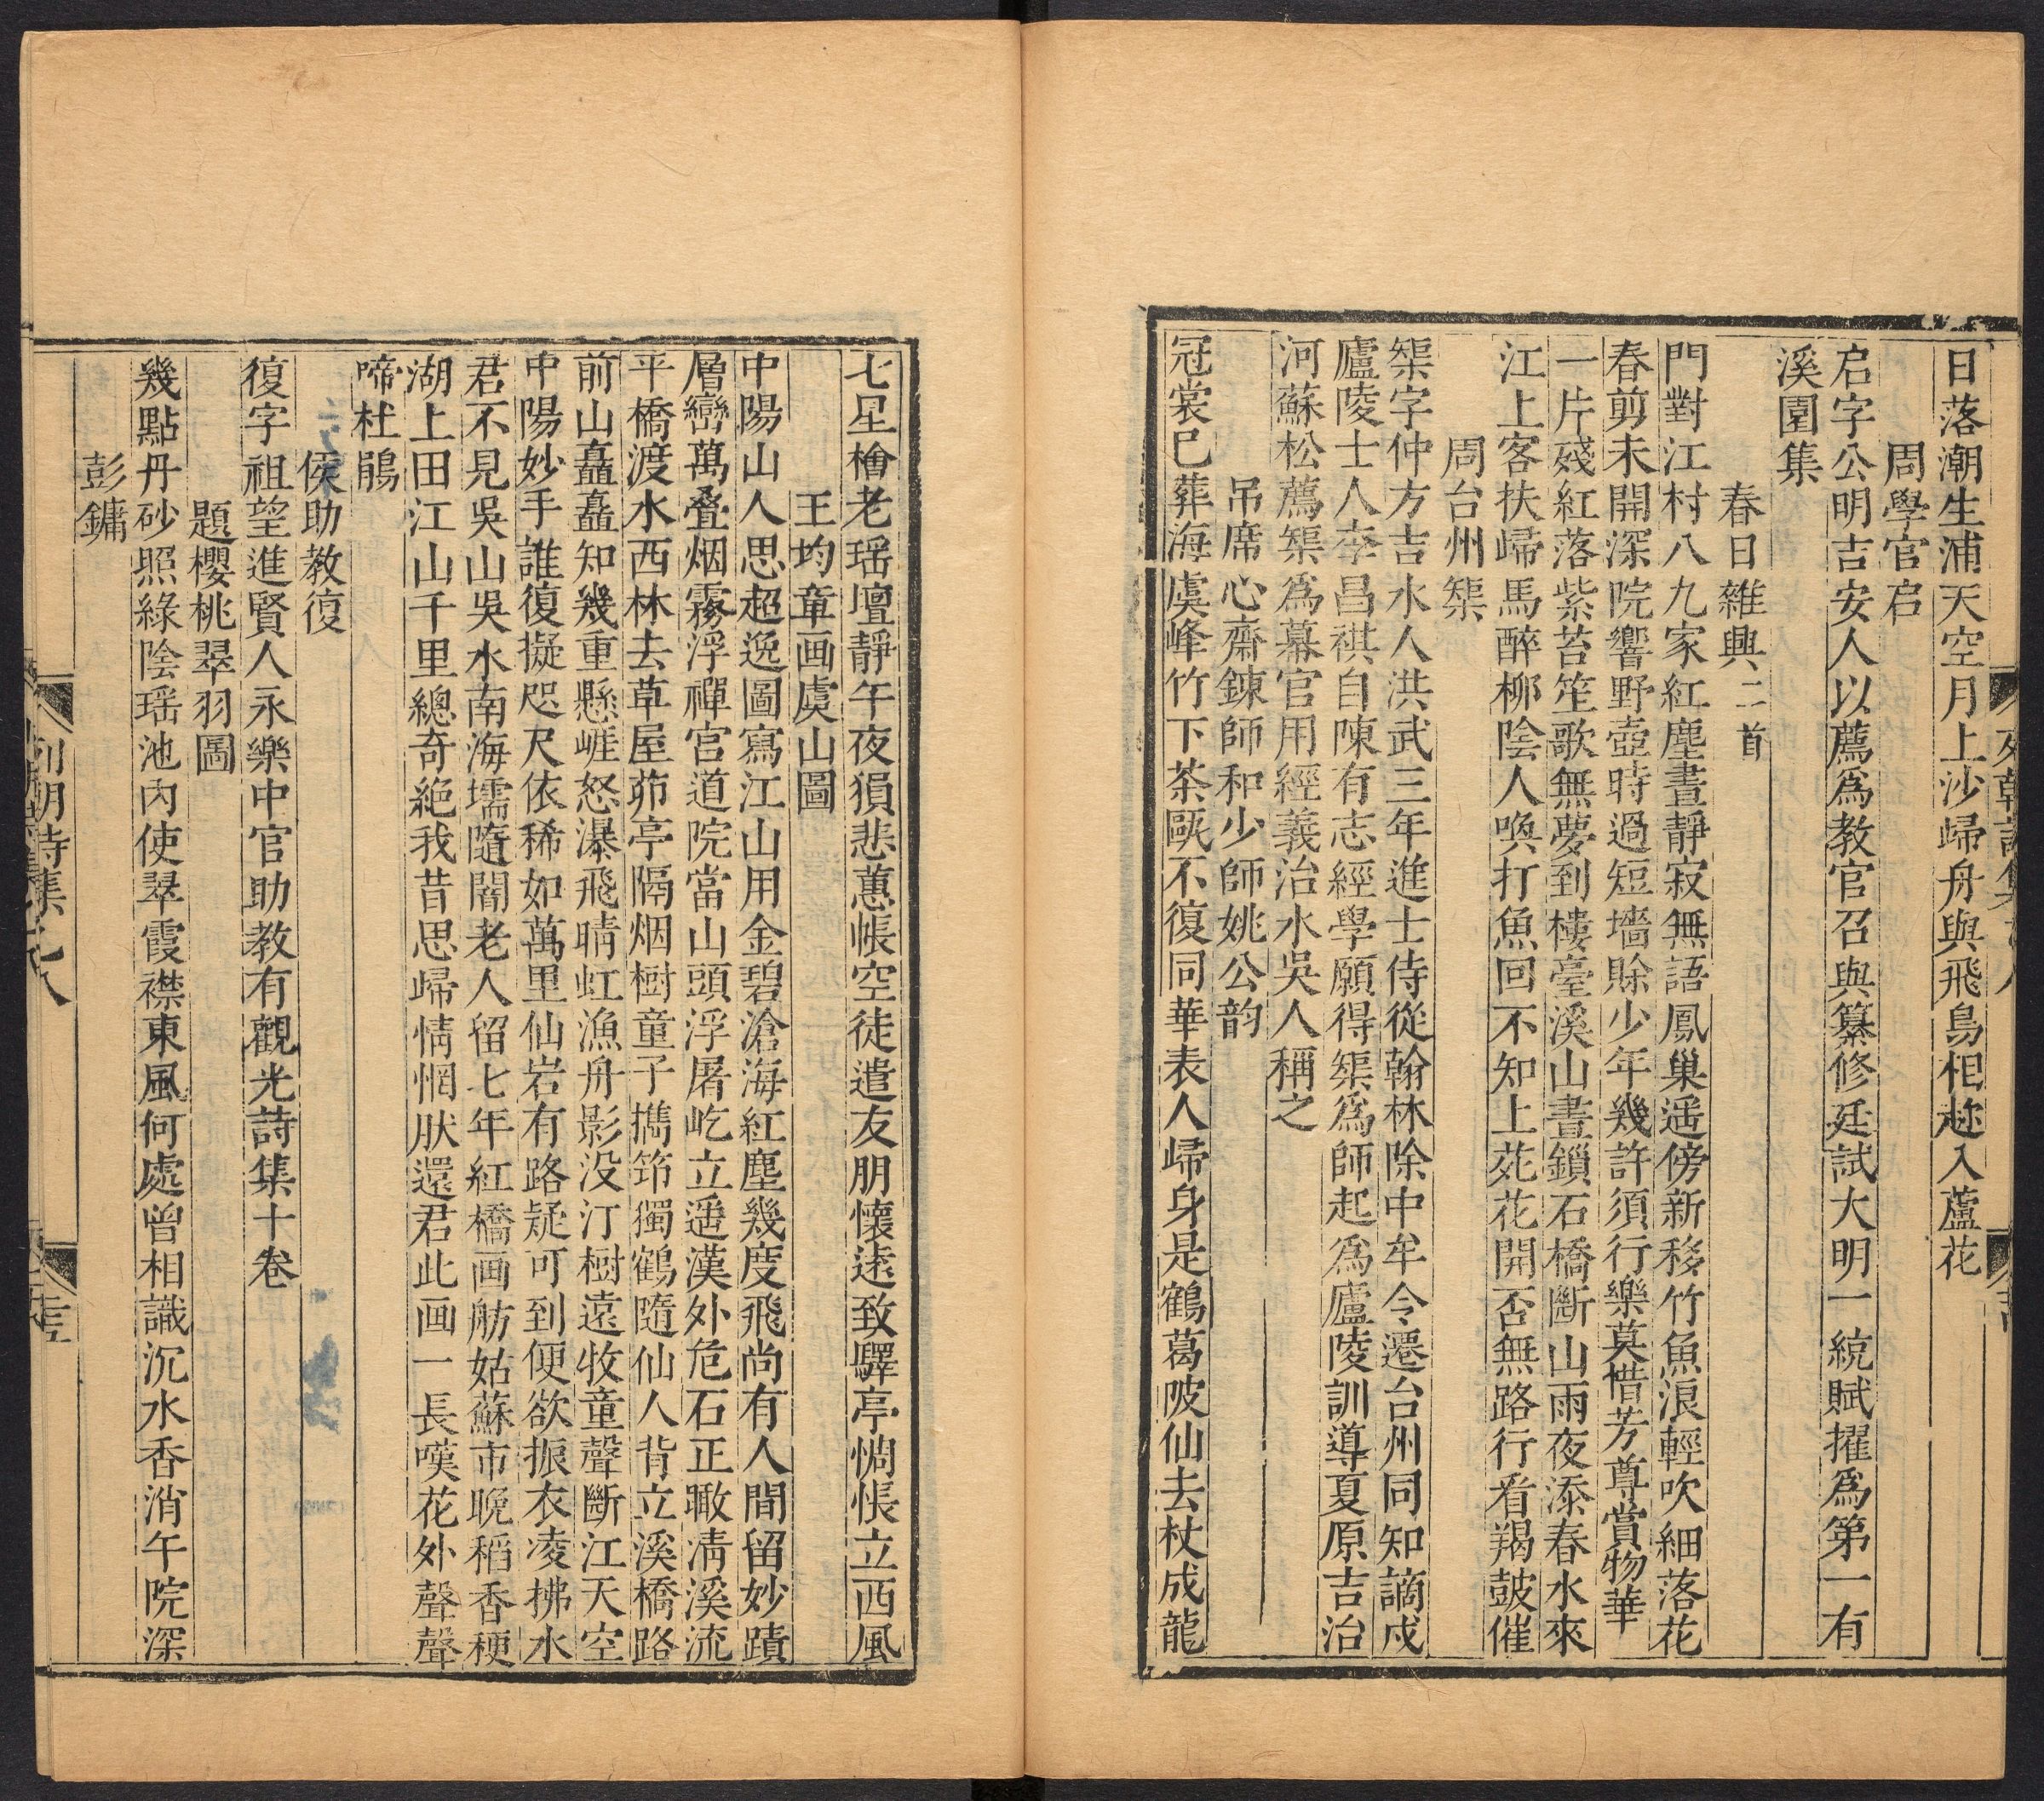 日落潮生浦天空月上沙歸舟與飛鳥相趂入蘆花
周學官启
启字公明吉安人以薦爲教官召與纂修廷試大明一統賦擢爲第一有
溪園集
春日雜興二首
門對江村八九家紅塵晝靜寂無語鳳巢遥傍新移竹魚浪輕吹細落花
春剪未開深院響野壺時過短墻賖少年幾許須行樂莫惜芳尊賞物華
一片殘紅落紫苔笙歌無夢到樓臺溪山晝鎖石橋斷山雨夜添春水來
江上客扶歸馬醉柳陰人喚打魚回不知上苑花開否無路行看羯鼓催
周台州榘
榘字仲方吉水人洪武三年進士侍從翰林除中牟令遷台州同知謫戍
廬陵士人李昌祺自陳有志經學願得榘爲師起爲廬陵訓導夏原吉治
河蘇松薦榘爲幕官用經義治水吳人稱之
吊席心齋鍊師和少師姚公韵
冠裳已葬海虞峰竹下茶甌不復同華表人歸身是鶴葛陂仙去杖成龍
七星檜老瑶壇靜午夜猿悲蕙帳空徒遣友朋懷逺致驛亭惆悵立西風
王均章画虞山圖
中陽山人思超逸圖寫江山用金碧滄海紅塵幾度飛尚有人間留妙蹟
層巒萬叠烟霧浮禪官道院當山頭浮屠屹立遥漢外危石正瞰清溪流
平橋渡水西林去草屋茆亭隔烟樹童子擕笻獨鶴隨仙人背立溪橋路
前山矗矗知幾重懸崕怒瀑飛晴虹漁舟影没汀樹遠牧童聲斷江天空
中陽妙手誰復擬咫尺依稀如萬里仙岩有路疑可到便欲振衣凌拂水
君不見吳山吳水南海壖隨闇老人留七年紅橋画舫姑蘇市晚稻香稉
湖上田江山千里總奇絶我昔思歸情惘肰還君此画一長嘆花外聲聲
啼杜鵑
侯助教復
復字祖望進賢人永樂中官助教有觀光詩集十卷
題櫻桃翠羽圖
幾點丹砂照綠陰瑶池內使翠霞襟東風何處曾相識沉水香消午院深
彭鏞
列朝詩集